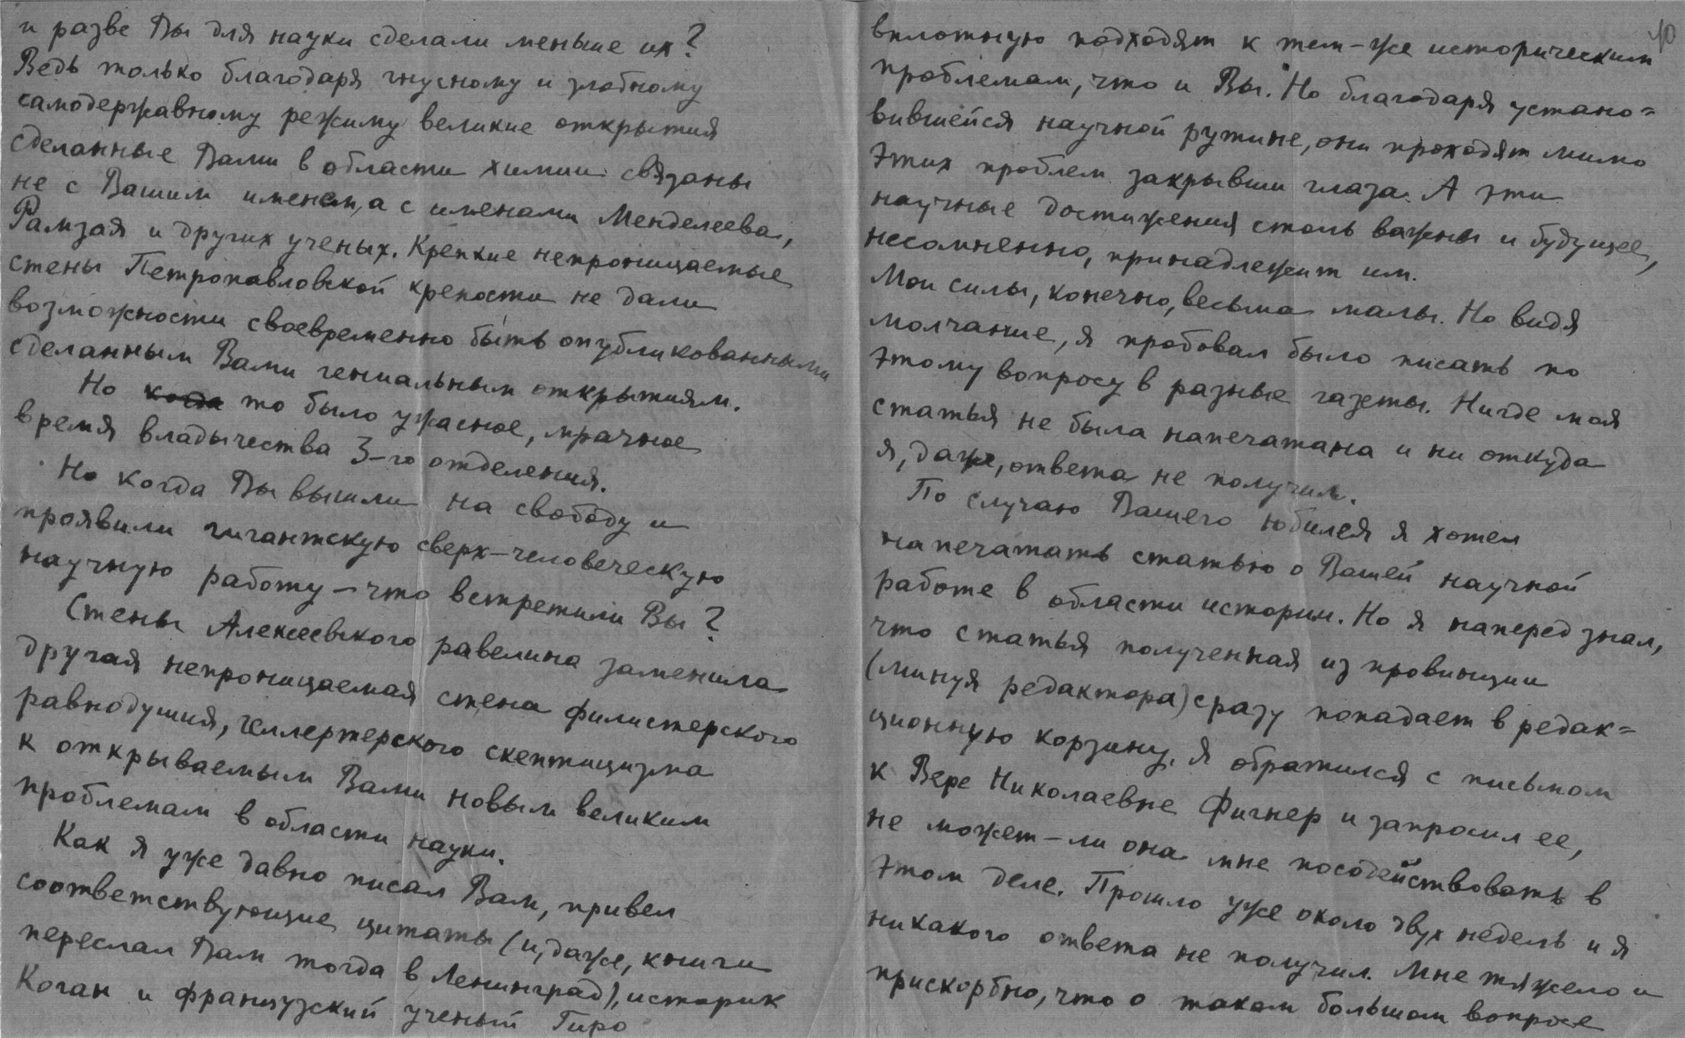 и разве Вы для науки сделали меньше их?
Ведь только благодаря гнусному и злобному
самодержавному режиму великие открытия
сделанные Вами в области химии связаны
не с Вашим именем, а с именами Менделеева,
Рамзая и других ученых. Крепкие непроницаемые
стены Петропавловской крепости не дали
возможности своевременно быть опубликованными
сделанным Вами гениальным открытиям.
Но когда то было ужасное, мрачное
время владычества 3-го отделения.
Но когда Вы вышли на свободу и
проявили гигантскую сверх-человеческую
научную работу – что встретили Вы?
Стены Алексеевского равелина заменила
другая непроницаемая стена филистерского
равнодушия, геллертерского скептицизма
к открываемым Вами новым великим
проблемам в области науки.
Как я уже давно писал Вам, привел
соответствующие цитаты (и, даже, книги
переслал Вам тогда в Ленинград), историк
Коган и французский ученый Гиро
10
вплотную подходят к тем-же историческим
проблемам, что и Вы. Но благодаря устано=
вившейся научной рутине, они проходят мимо
этих проблем закрывши глаза. А эти
научные достижения столь важны и будущее,
несомненно, принадлежит им.
Мои силы, конечно, весьма малы. Но видя
молчание, я пробовал было писать по
этому вопросу в разные газеты. Нигде моя
статья не была напечатана и ни откуда
я, даже, ответа не получил.
По случаю Вашего юбилея я хотел
напечатать статью о Вашей научной
работе в области истории. Но я наперед знал,
что статья полученная из провинции
(минуя редактора) сразу попадает в редак=
ционную корзину. Я обратился с письмом
к Вере Николаевне Фигнер и запросил ее,
не может-ли она мне посодействовать в
этом деле. Прошло уже около двух недель и я
никакого ответа не получил. Мне тяжело и
прискорбно, что о таком большом вопросе